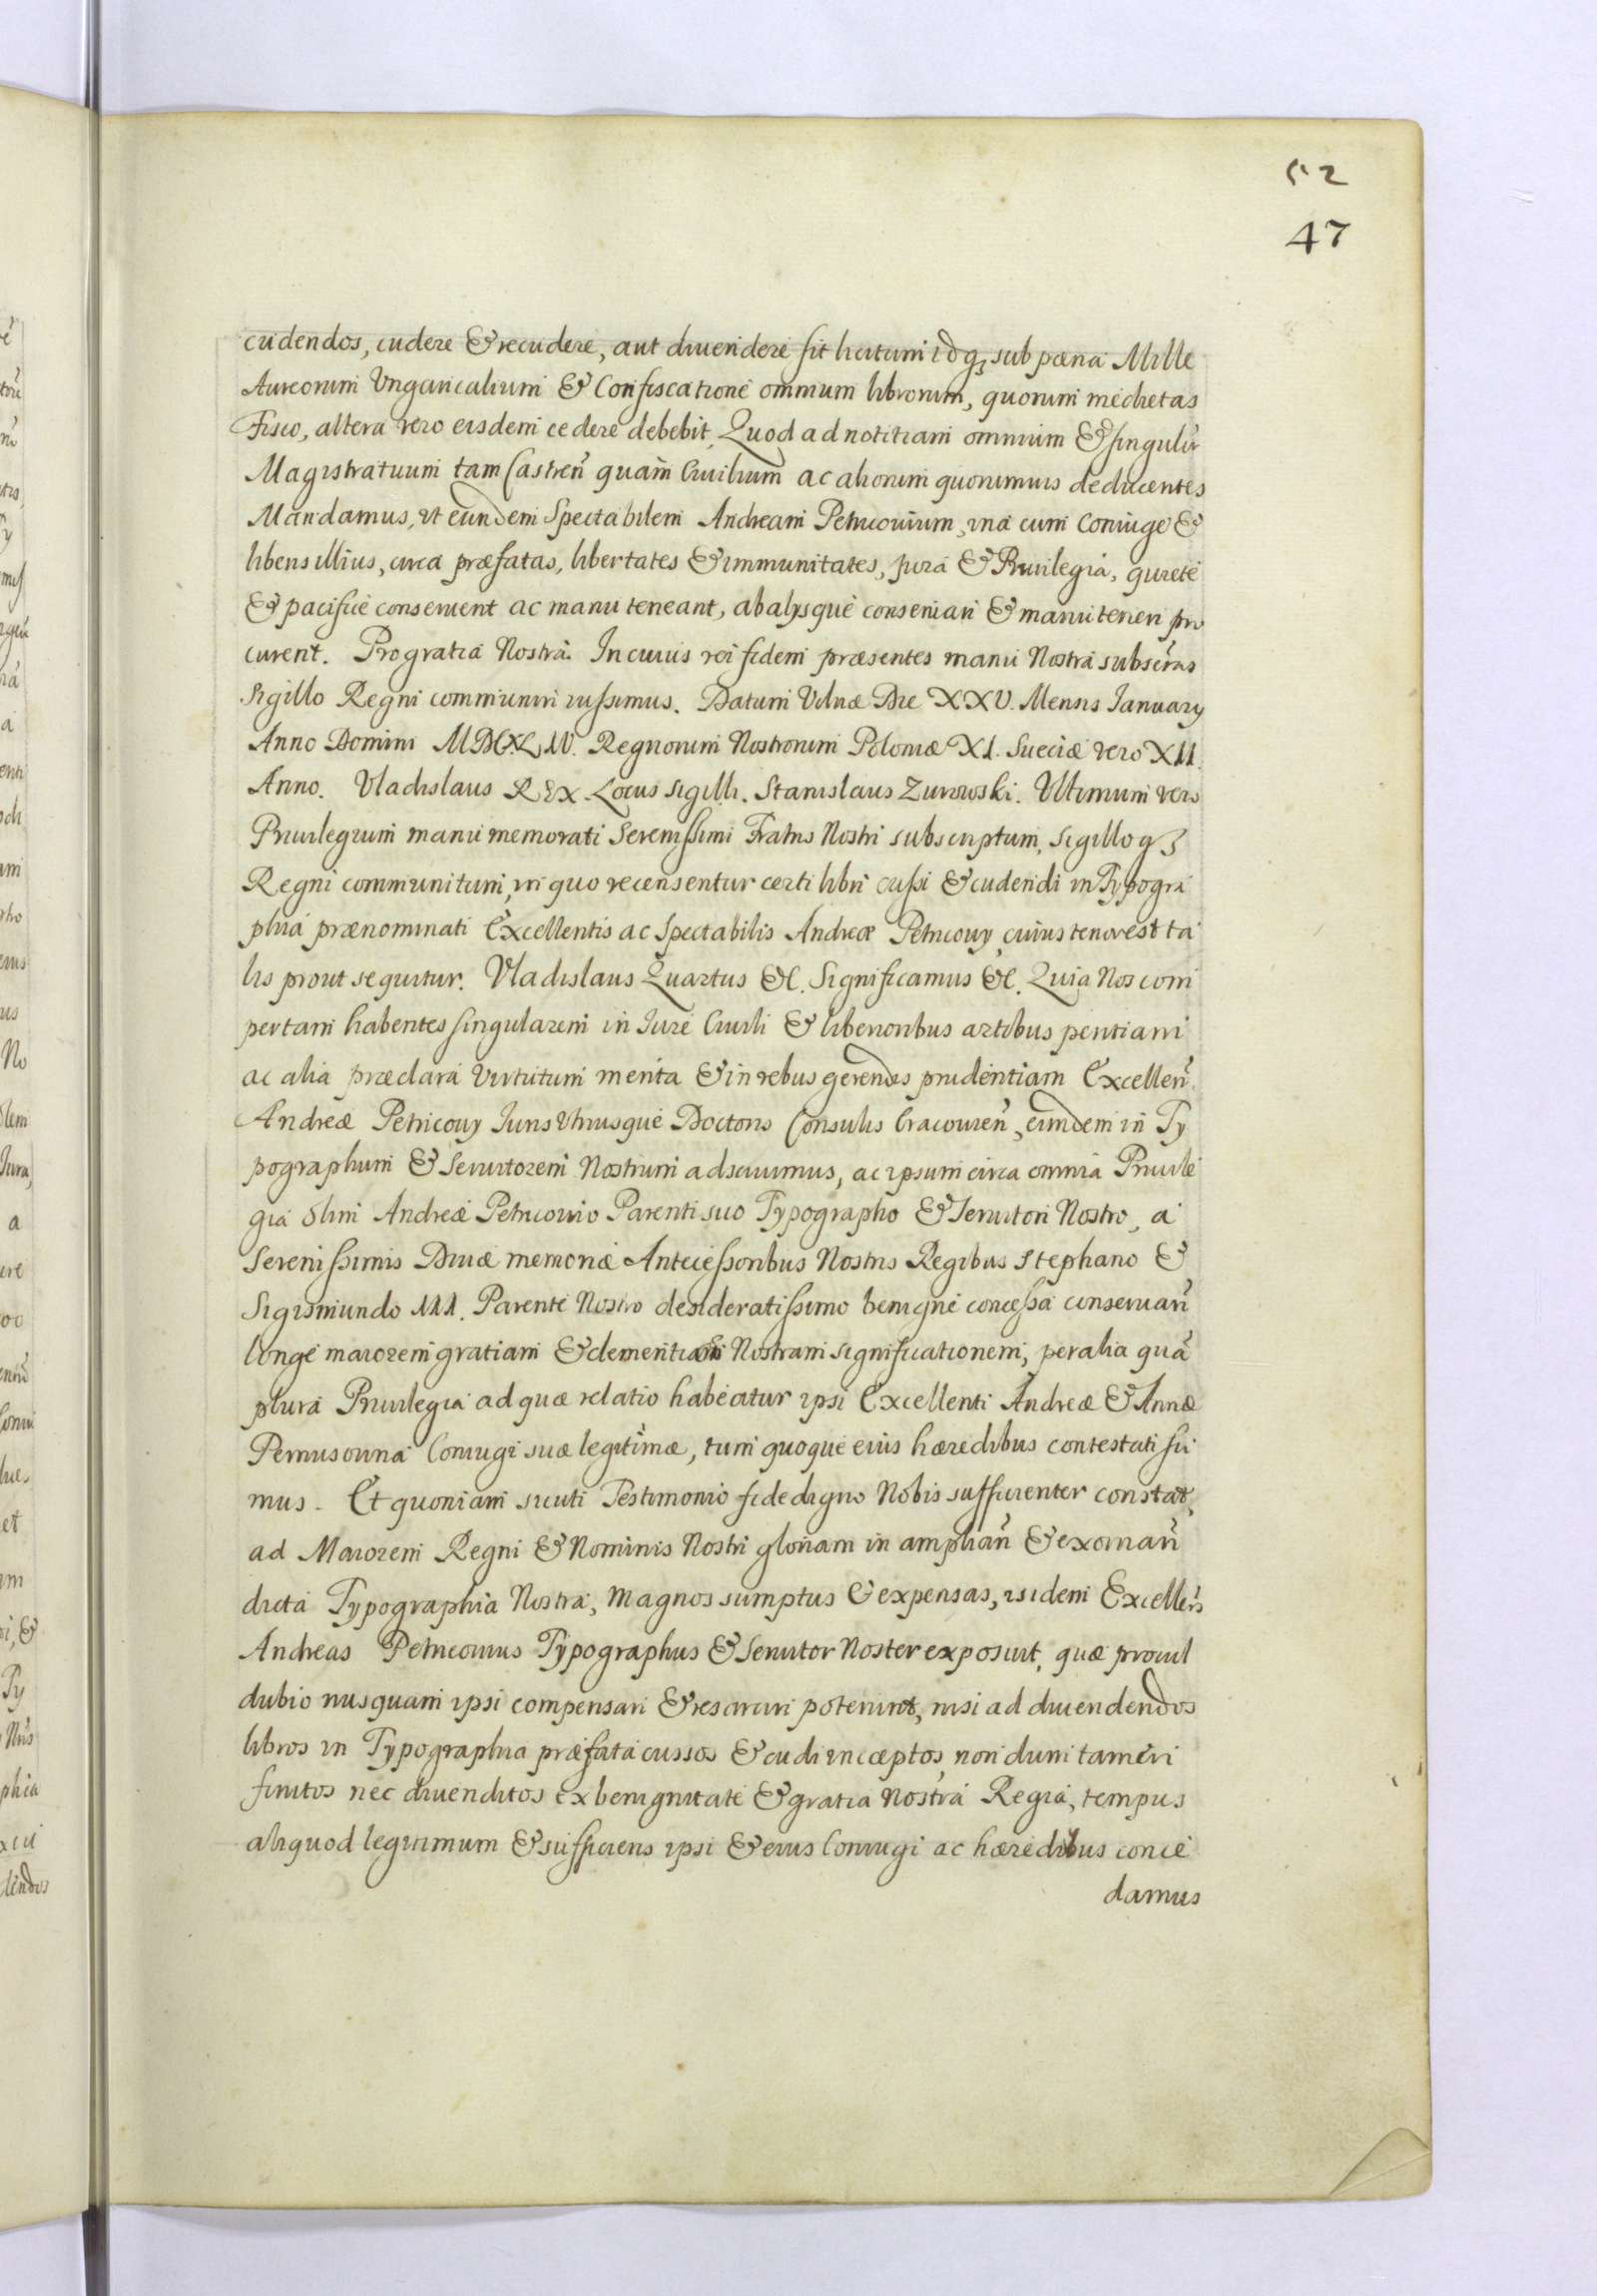 52
47
cudendos, cudere & recudere, aut divendere sit licitum idq; sub pœna Mille
Aureorum Ungaricalium & Confiscatione omnium librorum, quorum medietas
Fisco, altera vero eisdem cedere debebit. Quod ad notitiam omnium & singulor̃
Magistratuum tam Castreñ quam Civilium ac aliorum quorumvis deducentes
Mandamus, ut eundem Spectabilem Andream Petricovium, una cum Coniuge &
liberis illius, circa præfatas, libertates & immunitates, jura & Privilegia, quiete
& pacifice conservent ac manu teneant, ab alijsque conservari & manuteneri pro
curent. Pro gratia Nostra. In cuius rei fidem præsentes manu Nostra subscr̃as
Sigillo Regni communiri iussimus. Datum Vilnæ Die XXV. Mensis Ianuarij
Anno Domini MDCXLIV. Regnorum Nostrorum Poloniæ XI. Sueciæ vero XII.
Anno. Vladislaus REX. Locus Sigilli. Stanislaus Zurowski. Ultimum vero
Privilegium manu memorati Serenissimi Fratris Nostri subscriptum, Sigilloq;
Regni communitum, in quo recensentur certi libri cussi & cudendi in Typogra
phia prænominati Excellentis ac Spectabilis Andreæ Petricovij cuius tenor est ta
lis prout sequitur. Vladislaus Quartus &c. Significamus &c. Quia Nos com
pertam habentes singularem in Iure Civili & liberioribus artibus peritiam
ac alia præclara virtutum merita & in rebus gerendis prudentiam Excelleñ.
Andreæ Petricovij Iuris Utriusque Doctoris Consulis Cracovieñ, eundem in Ty
pographum & Servitorem Nostrum adscivimus, ac ipsum circa omnia Privile
gia olim Andreæ Petricovio Parenti suo Typographo & Servitori Nostro, a
Serenissimis Divæ memoriæ Antecessoribus Nostris Regibus Stephano &
Sigismundo III. Parente Nostro desideratissimo benigne concessa conservañ
longe maiorem gratiam & clementiam Nostram significationem, per alia quã
plura Privilegia ad quæ relatio habeatur ipsi Excellenti Andreæ & Annæ
Pernusovna Coniugi suæ legitimæ, tum quoque eius hæredibus contestati su
mus. Et quoniam sicuti Testimonio fide digno Nobis sufficienter constat,
ad Maiorem Regni & Nominis Nostri gloriam in ampliañ & exornañ
dicta Typographia Nostra, magnos sumptus & expensas, isidem Excelleñs
Andreas Petricovius Typographus & Servitor Noster exposuit, quæ procul
dubio nusquam ipsi compensari & resarciri poterunt, nisi ad divendendos
libros in Typographia præfata cussos & cudi incæptos, nondum tamen
finitos nec divenditos ex benignitate & gratia Nostra Regia, tempus
aliquod legitimum & sufficiens ipsi & eius Coniugi ac hæredibus conce
damus